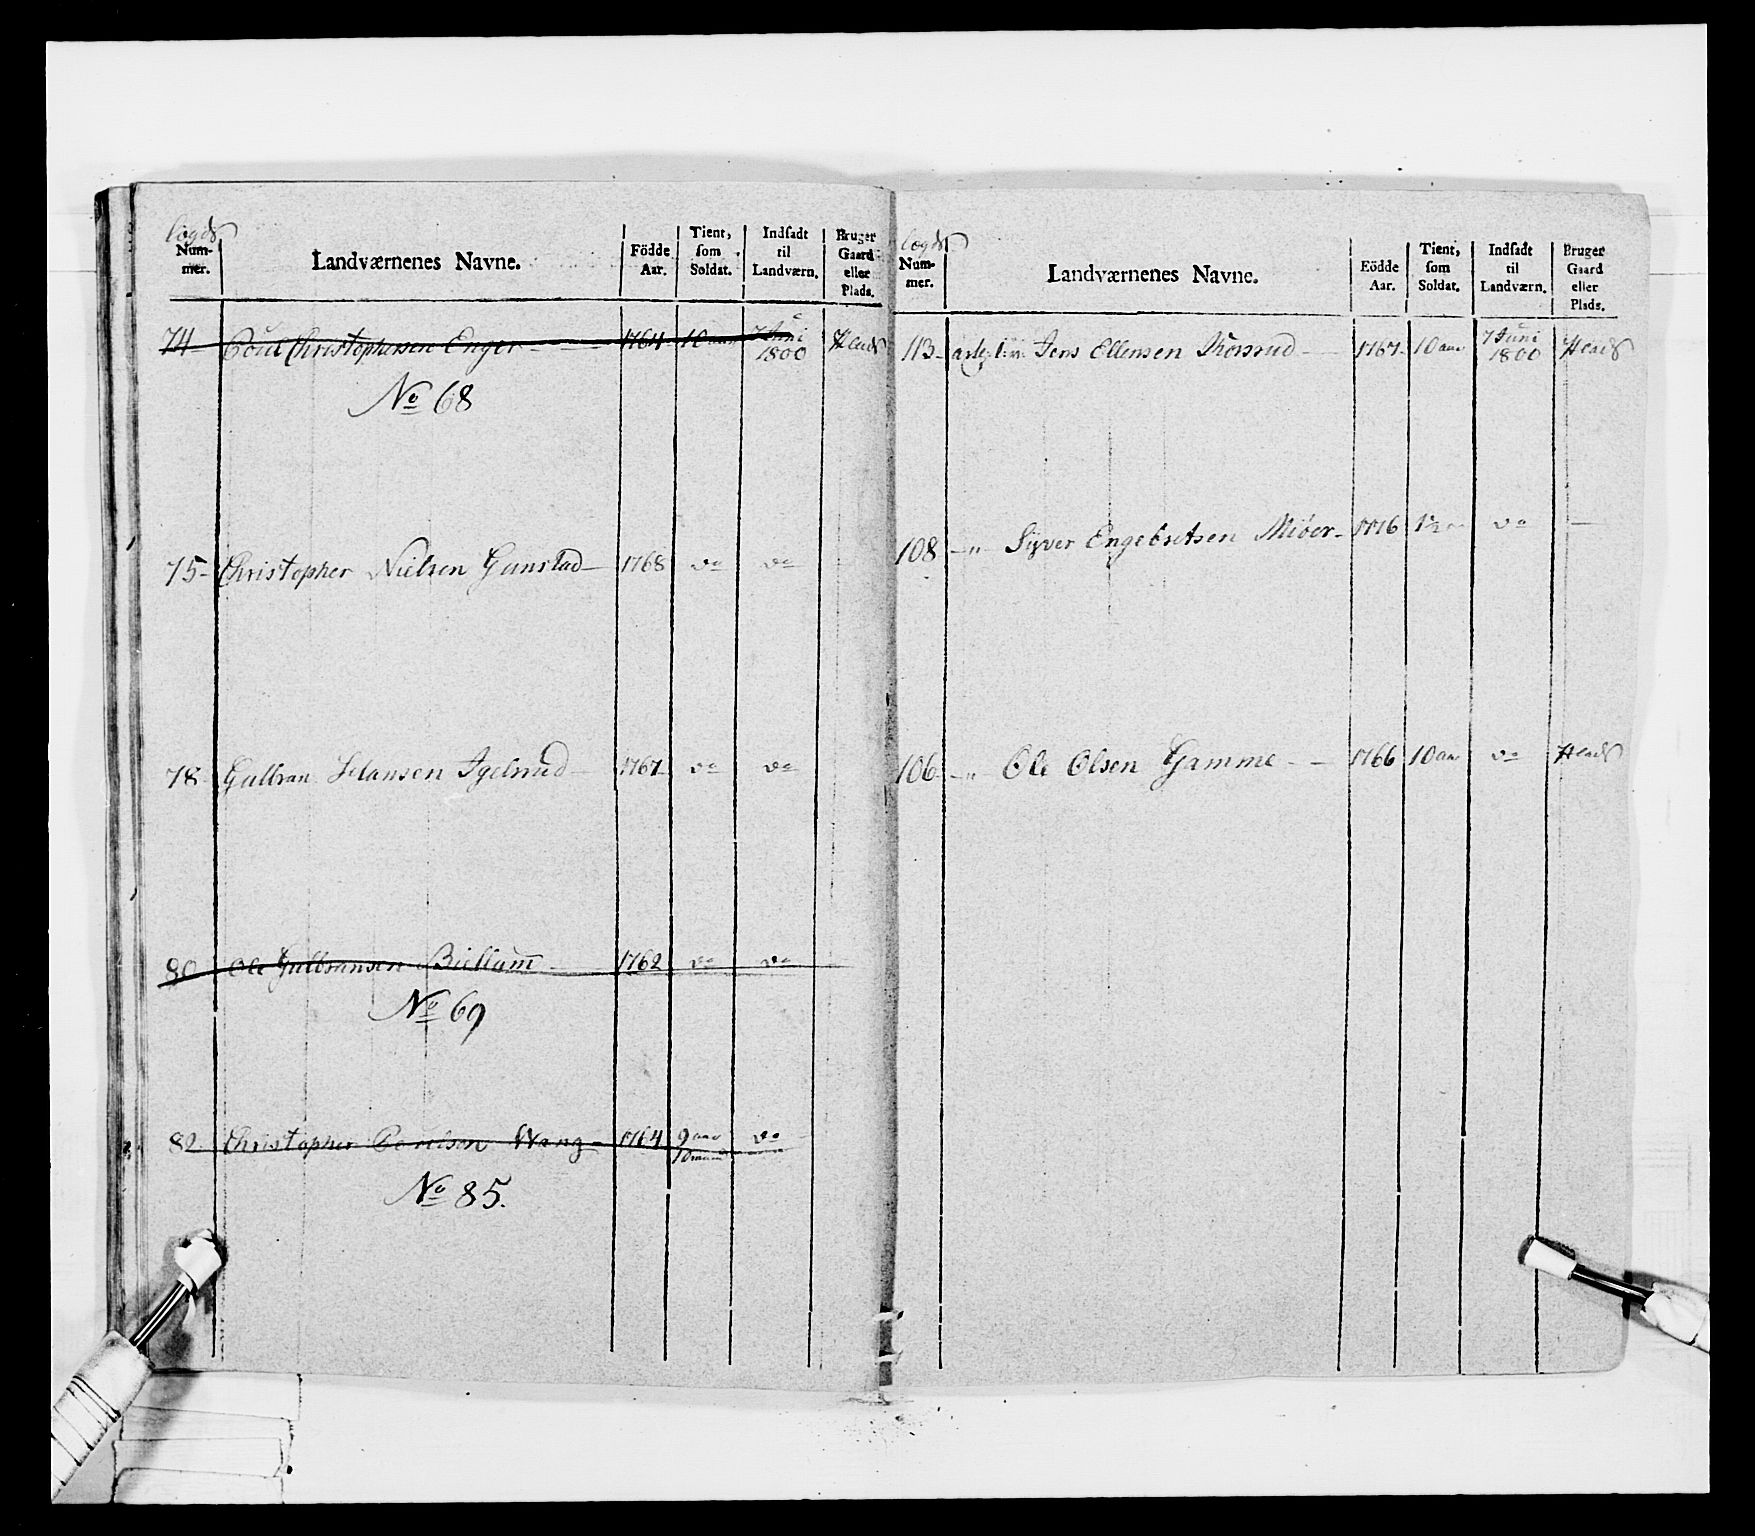 Lægds
Num-
mer.
Landværnenes Navne.
Födde
Aar.
Tient,
som
Soldat.
Indsadt
til
Landværn.
Bruger
Gaard
eller
Plads.
74 - Poul Christophersen Enger - 1764 10 aar 7 Juni 1800
No 68
75 - Christopher Nielsen Gunstad - 1768 do do
78 - Gulbran Hansen Igelsrud - 1767 do do
80 Ole Gulbransen Biellum̄ - 1762 do do
No 69
82 - Christopher Povelsen Wang - 1764 9 aar do
No 85.
Lægds
Num-
mer.
Landværnenes Navne.
Födde
Aar.
Tient,
som
Soldat.
Indsadt
til
Landværn.
Bruger
Gaard
eller
Plads.
113 - Jens Ellensen - 1767 10 aar 7 Juni 1800
108 - " - Syver Engebretsen - 1776 do -
106 - " - Ole Olsen Gamme - - 1766 10 aar do